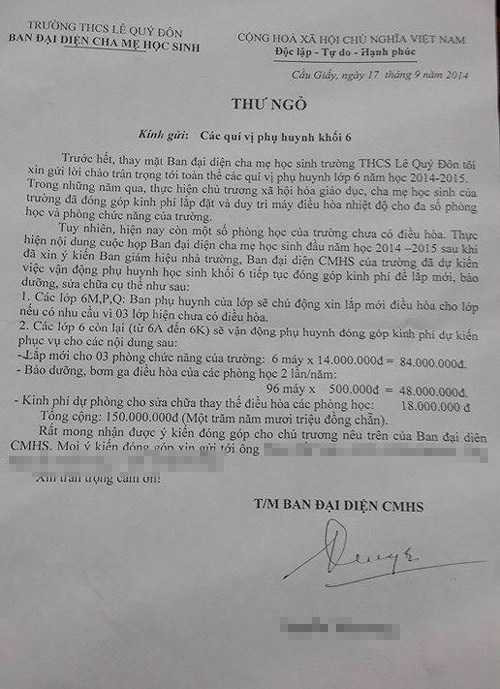 TRƯỜNG THCS LÊ QUÝ ĐÔN
BAN ĐẠI DIỆN CHA MẸ HỌC SINH
CỘNG HOÀ XÃ HỘI CHỦ NGHĨA VIỆT NAM
Độc lập - Tự do - Hạnh phúc
Cầu Giấy, ngày 17 tháng 9 năm 2014
THƯ NGỎ
Kính gửi: Các quí vị phụ huynh khối 6
Trước hết, thay mặt Ban đại diện cha mẹ học sinh trường THCS Lê Quý Đôn tôi
xin gửi lời chào trân trọng tới toàn thể các quí vị phụ huynh lớp 6 năm học 2014-2015.
Trong những năm qua, thực hiện chủ trương xã hội hóa giáo dục, cha mẹ học sinh của
trường đã đóng góp kinh phí lắp đặt và duy trì máy điều hòa nhiệt độ cho đa số phòng
học và phòng chức năng của trường.
Tuy nhiên, hiện nay còn một số phòng học của trường chưa có điều hòa. Thực
hiện nội dung cuộc họp Ban đại diện cha mẹ học sinh đầu năm học 2014 –2015 sau khi
đã xin ý kiến Ban giám hiệu nhà trường, Ban đại diện CMHS của trường đã dự kiến
việc vận động phụ huynh học sinh khối 6 tiếp tục đóng góp kinh phí để lắp mới, bảo
dưỡng, sửa chữa cụ thể như sau:
1. Các lớp 6M,P,Q: Ban phụ huynh của lớp sẽ chủ động xin lắp mới điều hòa cho lớp
nếu có nhu cầu vì 03 lớp hiện chưa có điều hòa.
2. Các lớp 6 còn lại (từ 6A đến 6K) sẽ vận động phụ huynh đóng góp kinh phí dự kiến
phục vụ cho các nội dung sau:
- Lắp mới cho 03 phòng chức năng của trường: 6 máy x 14.000.000đ = 84.000.000đ.
- Bảo dưỡng, bơm ga điều hòa của các phòng học 2 lần/năm:
96 máy x 500.000đ = 48.000.000đ.
- Kinh phí dự phòng cho sửa chữa thay thế điều hòa các phòng học: 18.000.000 đ
Tổng cộng: 150.000.000đ (Một trăm năm mươi triệu đồng chẵn).
Rất mong nhận được ý kiến đóng góp cho chủ trương nêu trên của Ban đại diện
CMHS. Mọi ý kiến đóng góp xin gửi tới ông
Xin trân trọng cảm ơn!
T/M BAN ĐẠI DIỆN CMHS